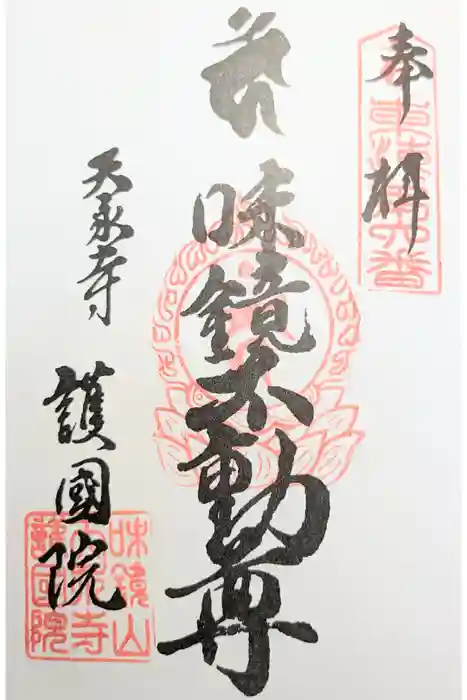 奉拝
味鏡不動尊
天永寺
護國院
味鏡山
天永寺
護国院